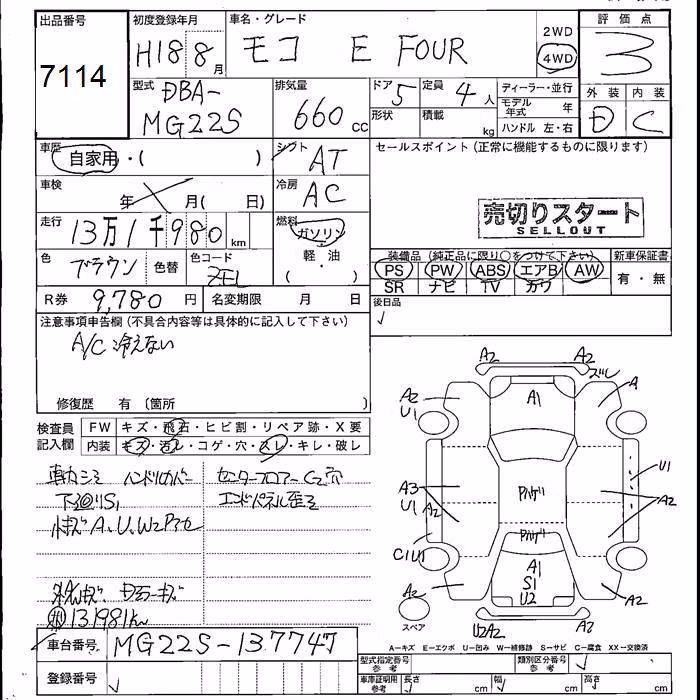 出品番号
7114
初度登録年月
H18 8月
車名・グレード
モコ E FOUR
2WD
4WD
評価点
3
外装 内装
D C
型式
DBA-
MG22S
排気量
660 cc
ドア 5
形状
定員 4人
積載 kg
ディーラー・並行
モデル年式 年
ハンドル 左・右
車歴
自家用・( )
シフト AT
セールスポイント(正常に機能するものに限ります)
車検
年 月( 日)
冷房 AC
売切りスタート
SELLOUT
走行
13万1千980 km
燃料
ガソリン
軽・油
色 ブラウン
色替
色コード
装備品(純正品に限り○をつけて下さい)
PS PW ABS エアB AW
SR ナビ TV カワ
新車保証書
有・無
R券 9,780 円
名変期限 月 日
後日品
注意事項申告欄(不具合内容等は具体的に記入して下さい)
A/C冷えない
修復歴 有 〔箇所 〕
検査員記入欄
FW キズ・飛石・ヒビ割・リペア跡・X要
内装 キズ・汚レ・コゲ・穴・スレ・キレ・破レ
ハンドルカバー
センターフロアー
エンドパネル歪ミ
131981km
A2 A2
ズレ
A2 U1
A1
A
A3 U1 A2
U1
A2
C1U1
A1 S1 U2
A2
A2
U2A2
A2
スペア
A-キズ E-エクボ U-凹み W-補修跡 S-サビ C-腐食 XX-交換済
車台番号 MG22S-137747
登録番号
型式指定番号 参考
類別区分番号 参考
車庫証明用 参考
長さ cm 幅 cm 高さ cm